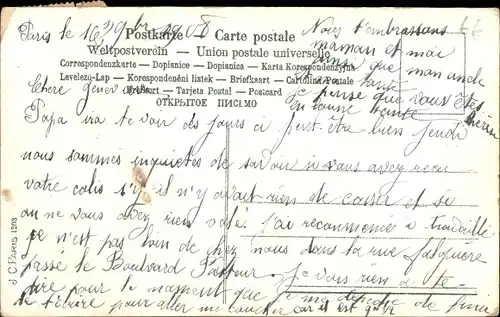 Paris le 16 9bre 1908
Postkarte – Carte postale
Weltpostverein – Union postale universelle
Correspondenzkarte – Dopisnice – Dopisnica – Karta Korespondencyjna
Levelezo-Lap – Korespondenční listek – Briefkaart – Cartolina Postale
Brefkort – Tarjeta Postal – Postcard
ОТКРЫТОЕ ПИСЬМО
Nous t'embrassons
maman et moi
ainsi que mon oncle
et ta tante
je pense que vous êtes
en bonne santé
Chère Geneviève
Papa ira te voir des jours ci peut-être bien jeudi
nous sommes inquiètes de savoir si vous avez reçu
votre colis s'il n'y avait rien de casser et si
on ne vous avez rien volé J'ai recommencé à travaillé
ce n'est pas loin de chez nous dans la rue Falguière
passé le Boulevard Pasteur. Je vois rien à te
dire pour le moment que je me dépêche de finir
pour aller me coucher car il est 9h ½
J.C. PARIS 1203